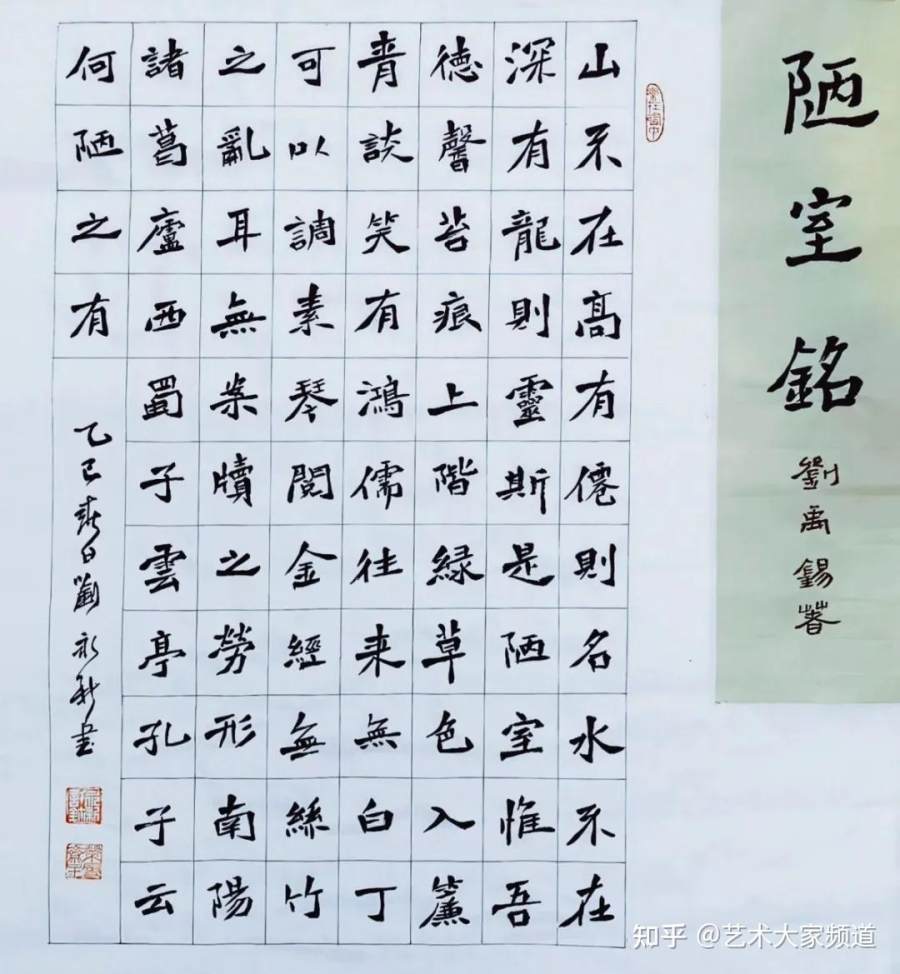 陋室銘
劉禹錫著
山不在髙有僊則名水不在
深有龍則靈斯是陋室惟吾
德馨苔痕上階緑草色入簾
青談笑有鴻儒往来無白丁
可以調素琴閲金經無絲竹
之亂耳無案牘之勞形南陽
諸葛廬西蜀子雲亭孔子云
何陋之有
乙巳春日劉永書
知乎 @艺术大家频道